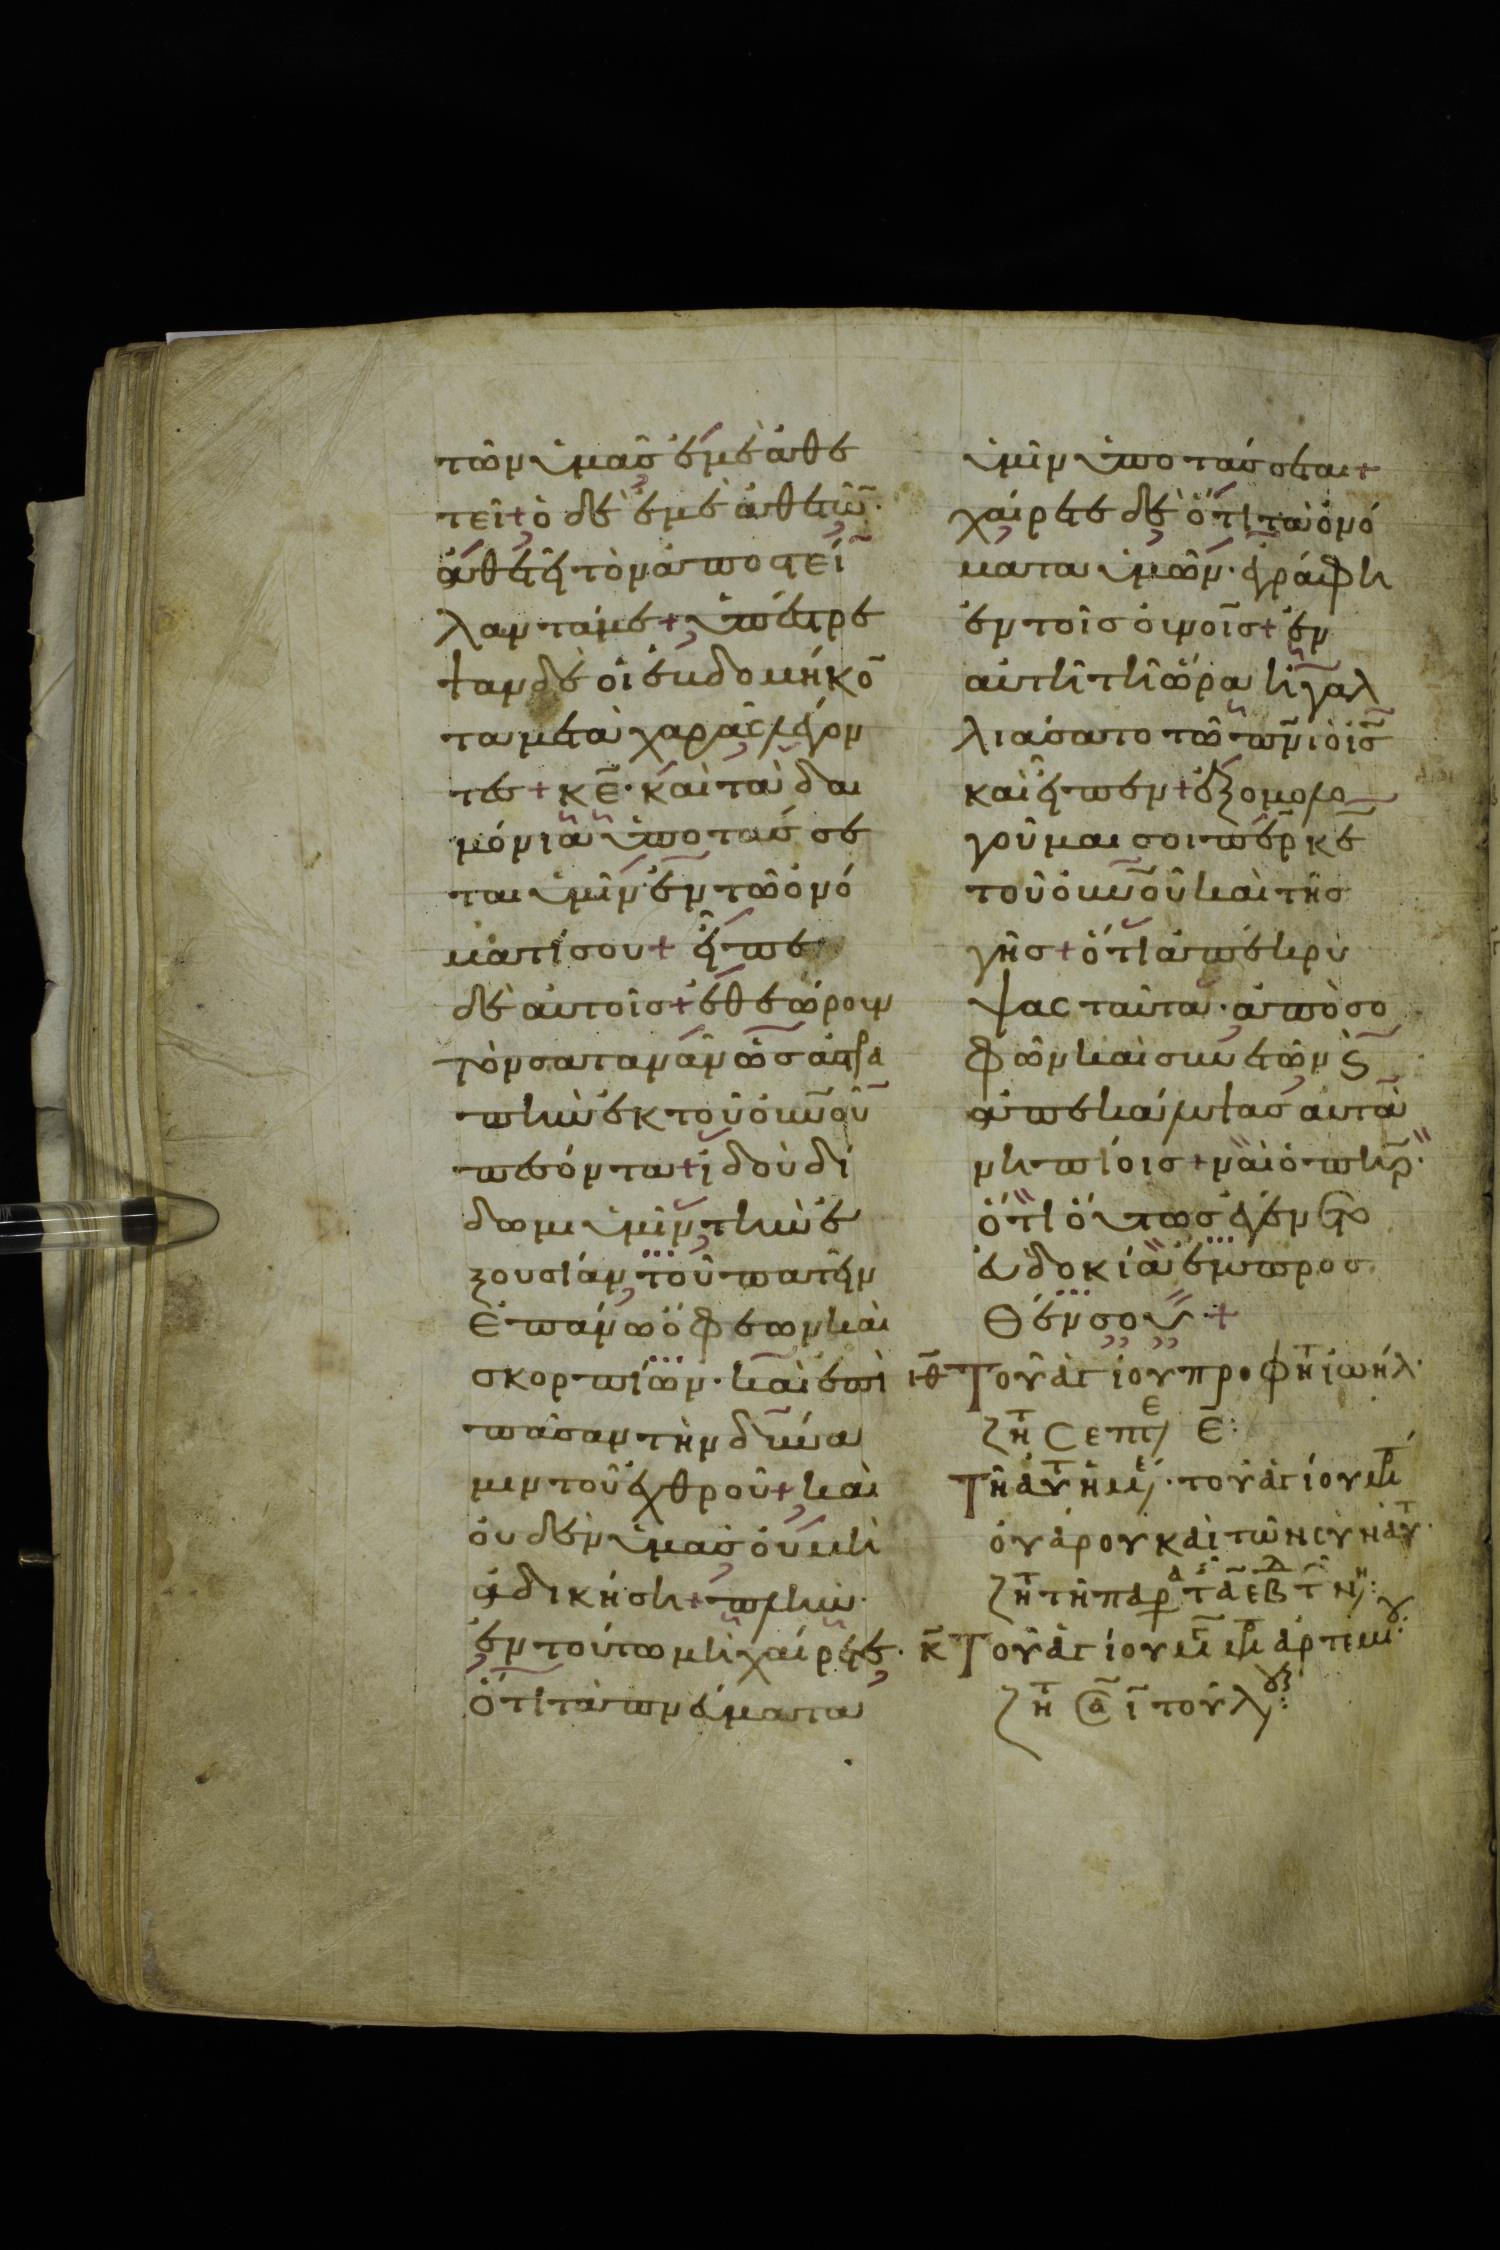 τῶν ὑμᾶς ἐμὲ ἀθε
τεῖ + ὁ δὲ ἐμὲ ἀθετῶ̄·
ἀθετεῖ τὸν ἀποστεί
λαντά με + ὑπέστρε
ψαν δὲ οἱ ἑβδομήκο̄
τα μετὰ χαρᾶς λέγον
τες + κ̄ε̄· καὶ τὰ δαι
μόνια ὑποτάσσε
ται ὑμῖν ἐν τῶ ὀνό
ματί σου + εἶπε
δὲ αὐτοῖς + ἐθεώρουν
τὸν σατανᾶν ὡς ἀστρα
πὴν ἐκ τοῦ ο̄ῡν̄ο̄ῦ̄
πεσόντα + ἰδοὺ δί
δωμι ὑμῖν τὴν ἐ
ξουσίαν τοῦ πατεῖν
ἐπάνω ὄφεων καὶ
σκορπίων· καὶ ἐπὶ
πᾶσαν τὴν δύνα
μιν τοῦ ἐχθροῦ + καὶ
οὐδὲν ὑμᾶς οὐ μὴ
ἀδικήση + πλὴν
ἐν τούτω μὴ χαίρετε·
ὅτι τὰ πνεύματα
ὑμῖν ὑποτάσσεται +
χαίρετε δὲ ὅτι τὰ ὀνό
ματα ὑμῶν· ἐγράφη
ἐν τοῖς ο̄ῡνοῖς + ἐν
αὐτῆ τῆ ὥρα ἠγαλ
λιάσατο τῶ π̄ν̄ι ὁ ῑς̄
καὶ εἶπεν + ἐξομολο
γοῦμαί σοι π̄ε̄ρ̄ κ̄ε̄
τοῦ ο̄ῡν̄οῦ καὶ τῆς
γῆς + ὅτι ἀπέκρυ
ψας ταῦτα· ἀπὸ σο
φῶν καὶ συνετῶν ϛ̀
ἀπεκάλυψας αὐτὰ
νηπίοις + ναὶ ὁ π̄η̄ρ̄·
ὅτι οὕτως ἐγένετο
εὐδοκία ἔμπροσ
θέν σου· +
ιθ̄ Τοῦ ἁγίου προφητ ἰωήλ·
ζητ Σεπτε ε̄:
Τῆ αὐτ ἡμε· τοῦ ἁγίου μρ
οὐάρου καὶ τῶν σὺν αὐτ·
ζητ τῆ παρα
κ̄ Τοῦ ἁγίου μεγ μρ ἀρτεμ
ζητ ᾱ ῑ τοῦ λουξ: